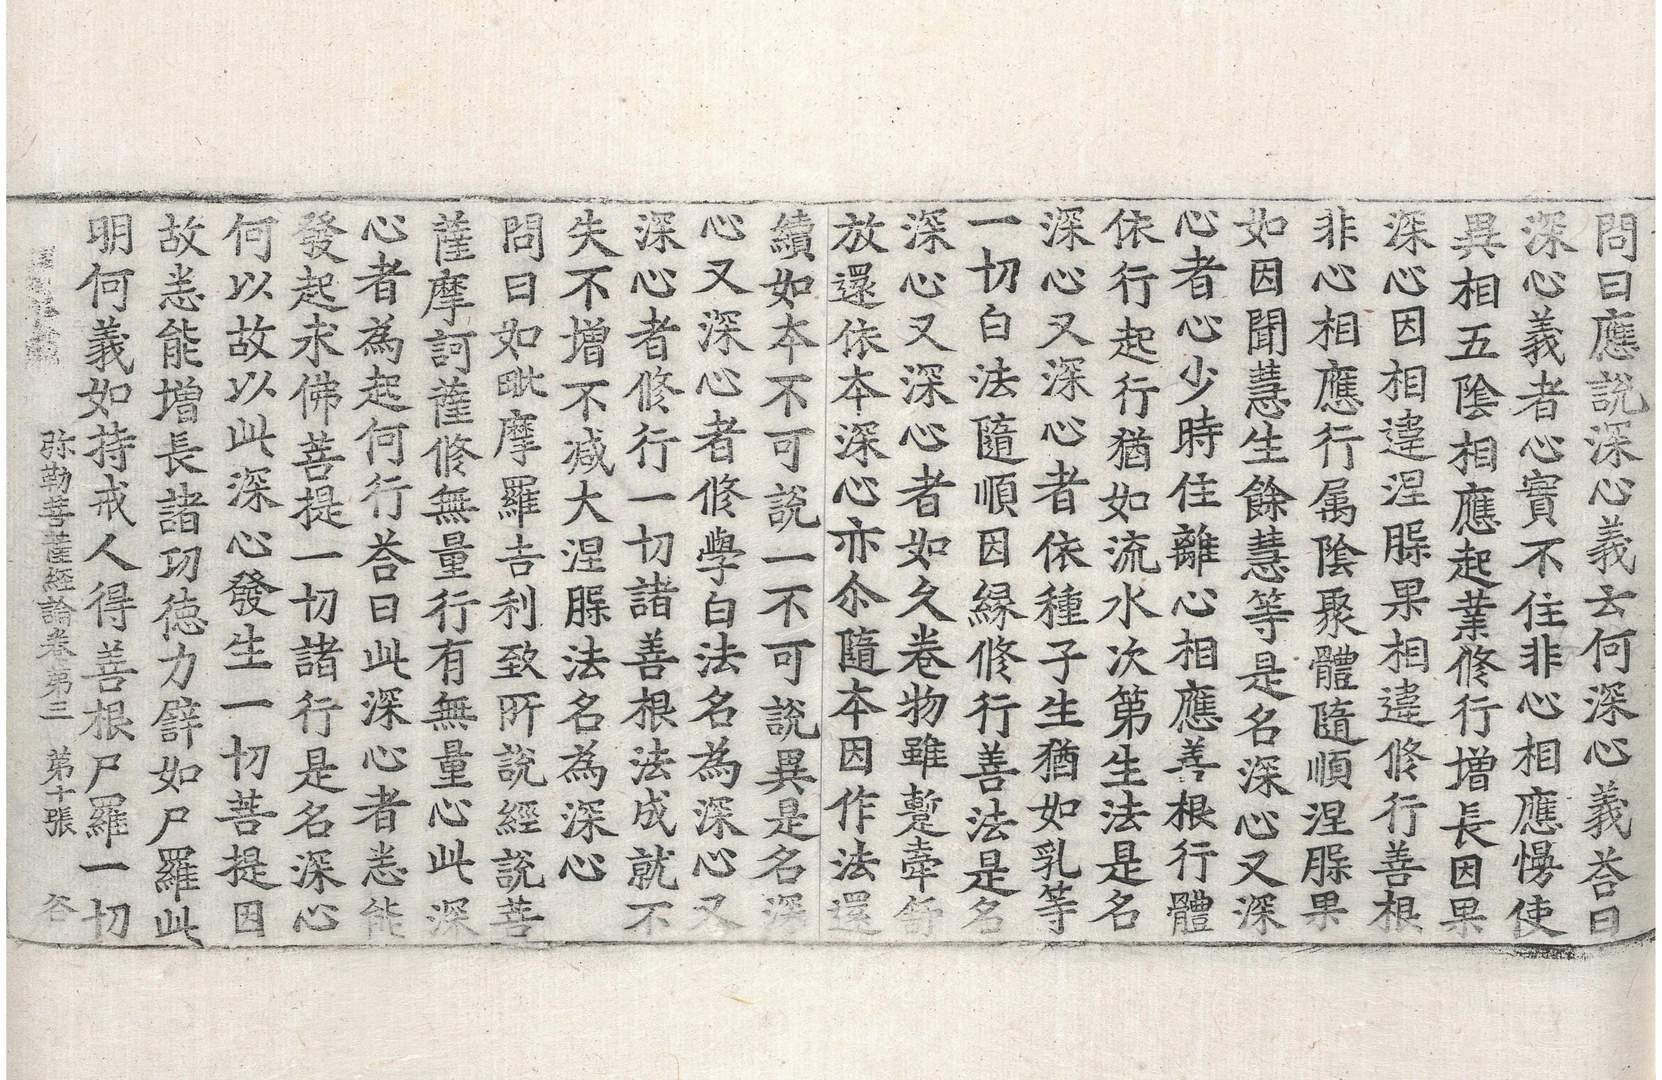 問曰應說深心義云何深心義荅曰
深心義者心實不住非心相應慢使
異相五陰相應起業修行增長因果
深心因相違涅脲果相違修行善根
非心相應行属陰聚體隨順涅脲果
如因聞慧生餘慧等是名深心又深
心者心少時住離心相應善根行體
依行起行猶如流水次第生法是名
深心又深心者依種子生猶如乳等
一切白法隨順因緣修行善法是名
深心又深心者如久卷物雖蹔牽舒
放還依本深心亦尒隨本因作法還
續如本不可說一不可說異是名深
心又深心者修學白法名為深心又
深心者修行一切諸善根法成就不
失不增不减大涅脲法名為深心
問曰如毗摩羅吉利致所說經說菩
薩摩訶薩修無量行有無量心此深
心者為起何行荅曰此深心者恙能
發起求佛菩提一切諸行是名深心
何以故以此深心發生一切菩提因
故恙能增長諸功徳力譬如尸羅此
明何義如持戒人得善根尸羅一切
弥勒菩薩經論卷第三 第十張 谷